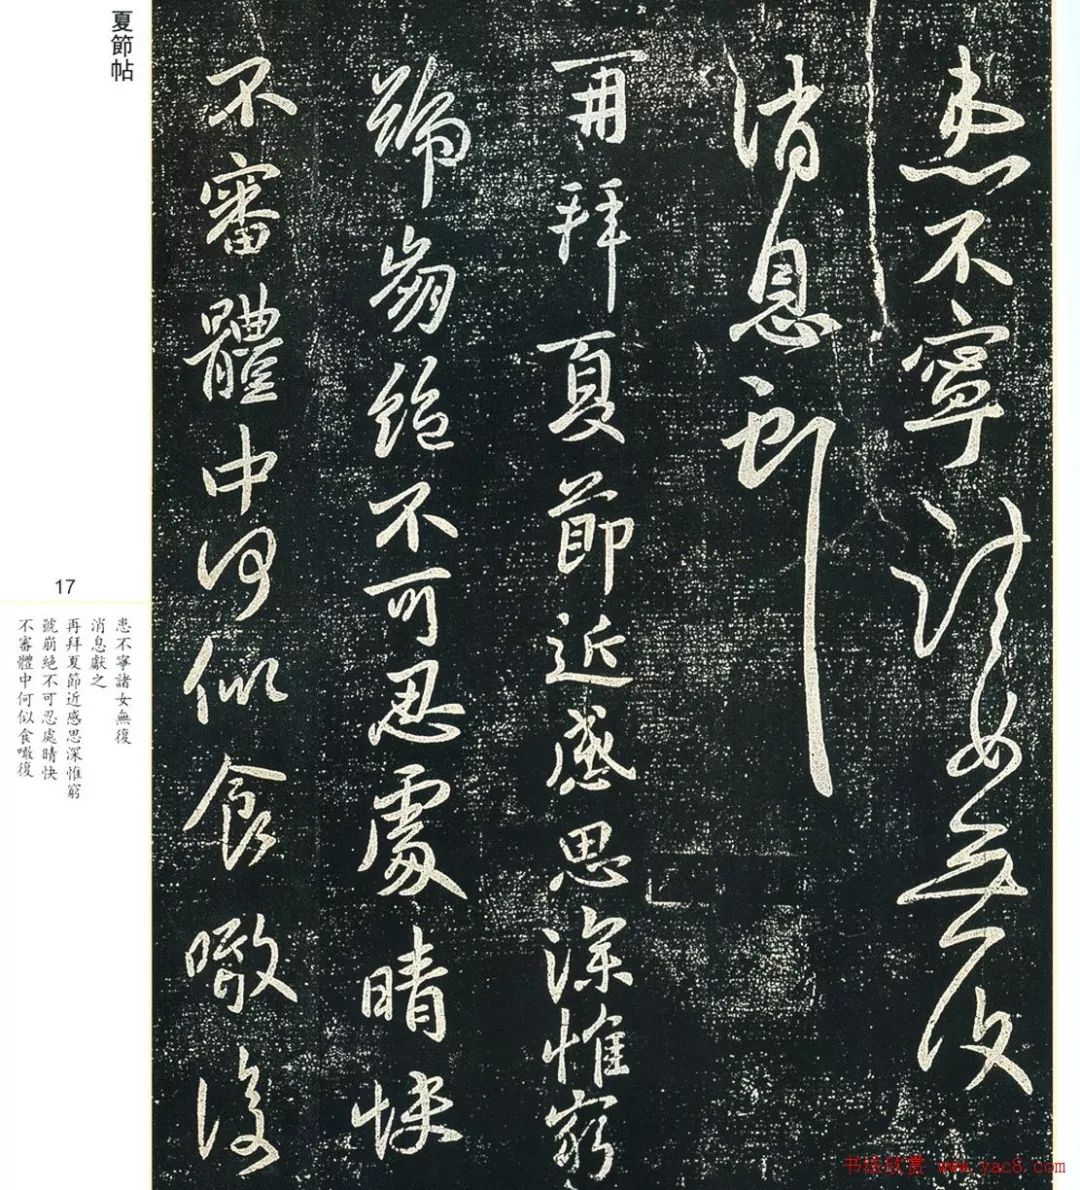 夏節帖
患不寧諸女無復
消息獻之
再拜夏節近感思深惟窮
號崩絕不可忍處晴快
不審體中何似食噉復
17
患不寧諸女無復
消息獻之
再拜夏節近感思深惟窮
號崩絕不可忍處晴快
不審體中何似食噉復
书法欣赏 www.yac8.com